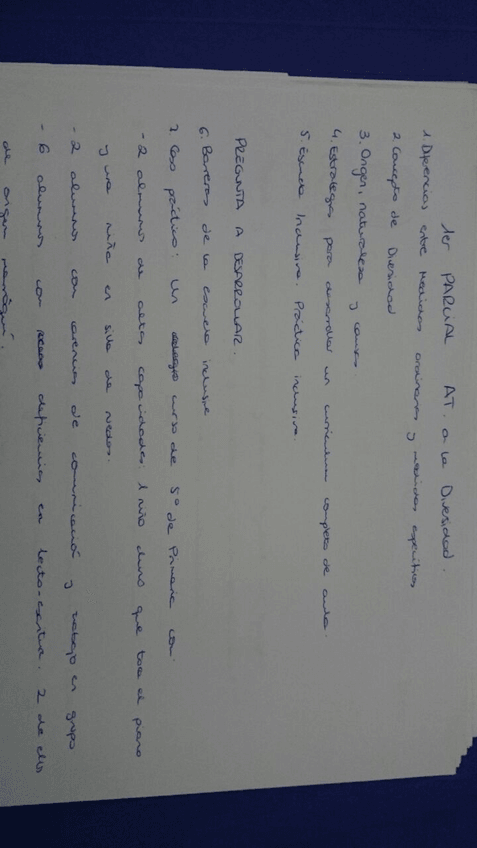 1er PARCIAL AT. a la Diversidad.
1. Diferencias entre medidas ordinarias y medidas específicas
2. Concepto de Diversidad
3. Origen, naturaleza y causas.
4. Estrategias para desarrollar un curriculum completo de aula.
5. Escuela Inclusiva. Práctica inclusiva.
PREGUNTA A DESARROLLAR.
6. Barreras de la escuela inclusiva
7. Caso práctico: Un curso de 5º de Primaria con:
- 2 alumnos de altas capacidades: 1 niño chino que toca el piano
y una niña en silla de ruedas.
- 2 alumnos con carencias de comunicación y trabajo en grupo
- 6 alumnos con deficiencias en lecto-escritura. 2 de ellos
de origen marroquí.